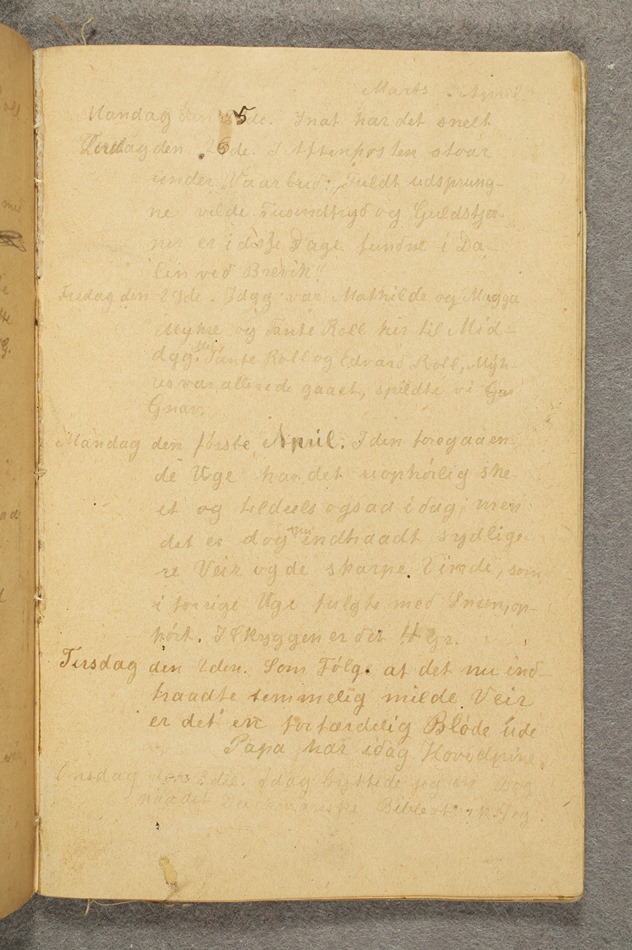 Marts. April.
Mandag den 25de. Inat har det sneet
Tirsdag den 26de. I Aftenposten stoar
under "Vaarbud": Fuldt udsprung-
ne vilde Tusindfryd og Guldstjæ-
ner er i disse Dage fundne i Da-
len ved Brevik!
Fredag den 29de. Idag var Mathilde og Magga
Myhre og Tante Roll her til Mid-
dag. Tante Roll og Edvard Roll, Myh-
res var allerede gaaet, spildte vi
Gnav.
Mandag den første April. I den foregaaen
de Uge har det uophørlig sne
et og tildeels ogsaa idag; men
det er dog nu indtraadt sydlige
re Veir og de skarpe Vinde, som
i forrige Uge fulgte med Sneen, op-
hørt. I Skyggen er det 4 gr.
Tirsdag den 2den. Som Følge af det nu ind-
traadte temmelig milde Veir
er det en forfærdelig Bløde ude
Papa har idag Hovedpine.
Onsdag den 3die. Idag byttede jeg en Bog
Bibliothek og